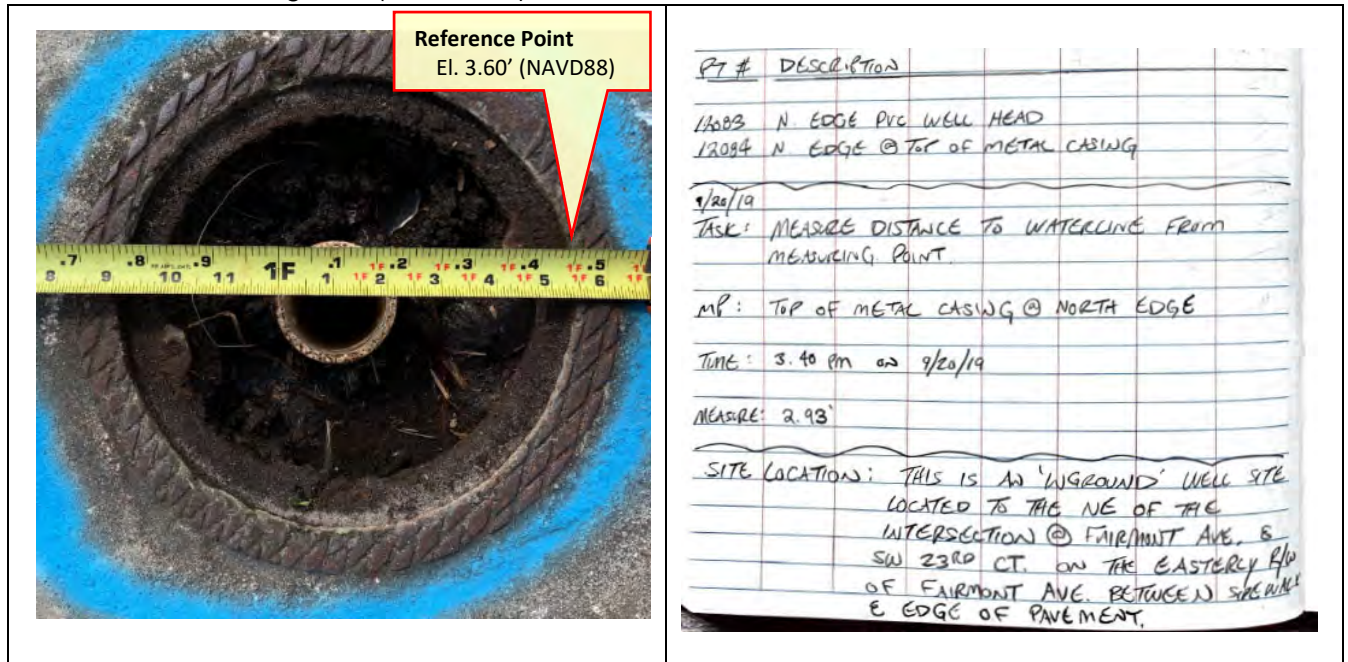 Reference Point
El. 3.60’ (NAVD88)
.7 .8 .9 .1 1F .2 1F .3 1F .4 1F .5
8 9 10 11 1F 1 1F 2 1F 3 1F 4 1F 5 1F 6
PT # DESCRIPTION
12083 N. EDGE PVC WELL HEAD
12084 N. EDGE @ TOP OF METAL CASING
9/20/19
TASK: MEASURE DISTANCE TO WATERLINE FROM
MEASURING POINT.
MP: TOP OF METAL CASING @ NORTH EDGE
TIME: 3.40 PM ON 9/20/19
MEASURE: 2.93'
SITE LOCATION: THIS IS AN 'INGROUND' WELL SITE
LOCATED TO THE NE OF THE
INTERSECTION @ FAIRMONT AVE. &
SW 23RD CT. ON THE EASTERLY R/W
OF FAIRMONT AVE. BETWEEN SIDEWALK
& EDGE OF PAVEMENT.